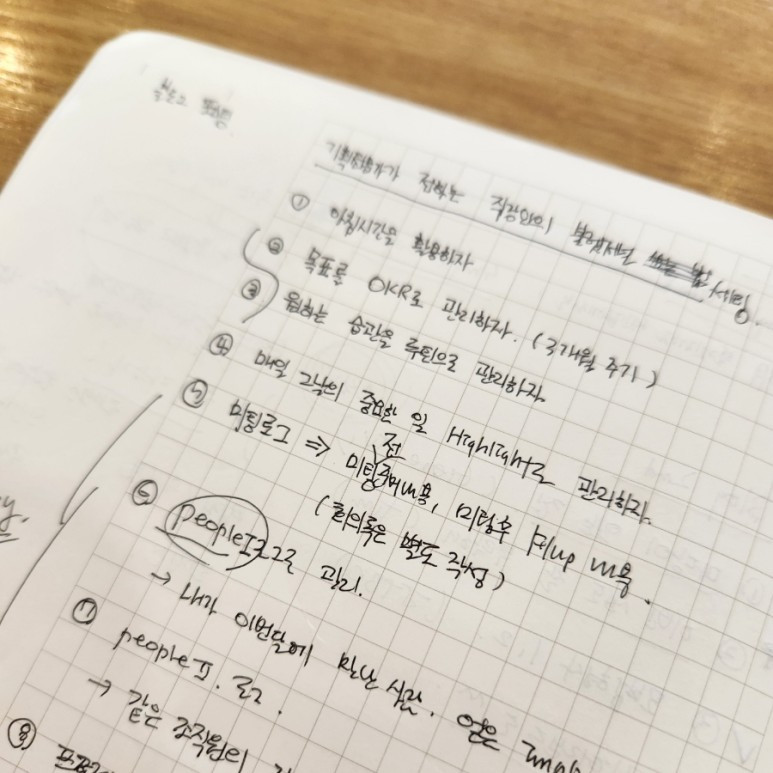 기획전달자가 전하는 직장인의 불렛저널 세팅.
① 아침시간을 활용하자
② 목표를 OKR로 관리하자. (3개월 주기)
③ 원하는 습관을 루틴으로 관리하자.
④ 매일 그날의 중요한 일 Highlight로 관리하자.
⑤ 미팅로그 ⇒ 미팅전 준비내용, 미팅후 내용.
(회의록은 별도 작성)
⑥ peopleI 로그로 관리.
→ 내가 이번달에 만난 사람. 얻은
⑦ peopleⅡ. 로그.
→ 같은 조직원의
⑧
y.